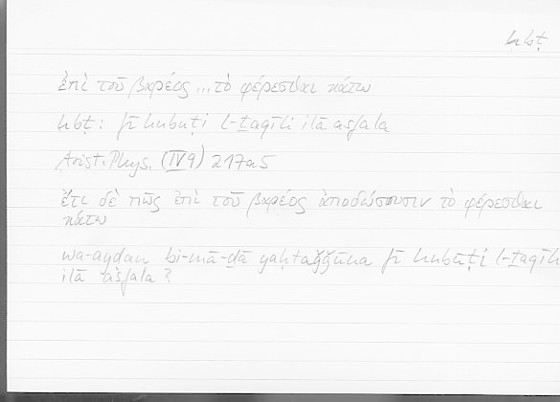 hbṭ
ἐπὶ τοῦ βαρέος ... τὸ φέρεσθαι κάτω
hbṭ: fī hubūṭi l-ṯaqīli ilā asfala
Arist. Phys. (IV 9) 217a5
ἔτι δὲ πῶς ἐπὶ τοῦ βαρέος ἀποδώσουσιν τὸ φέρεσθαι
κάτω
wa-ayḍan bi-mā-ḏā yaḥtaǧǧūna fī hubūṭi l-ṯaqīli
ilā asfala?